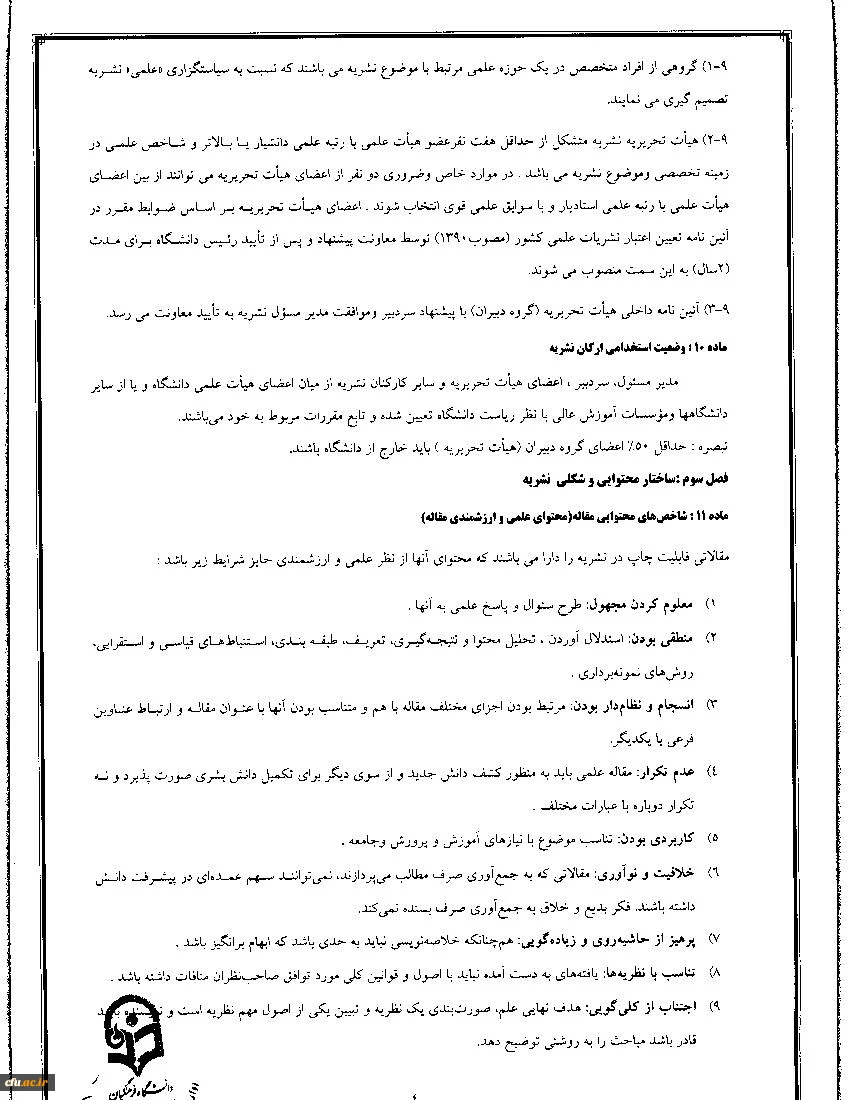 ۹-۱) گروهی از افراد متخصص در یک حوزه علمی مرتبط با موضوع نشریه می باشند که نسبت به سیاستگزاری «علمی» نشریه
تصمیم گیری می نمایند.
۹-۲) هیأت تحریریه نشریه متشکل از حداقل هفت نفرعضو هیأت علمی با رتبه علمی دانشیار یا بالاتر و شاخص علمی در
زمینه تخصصی وموضوع نشریه می باشد . در موارد خاص وضروری دو نفر از اعضای هیأت تحریریه می توانند از بین اعضای
هیأت علمی با رتبه علمی استادیار و با سوابق علمی قوی انتخاب شوند . اعضای هیأت تحریریه بر اساس ضوابط مقرر در
آئین نامه تعیین اعتبار نشریات علمی کشور (مصوب۱۳۹۰) توسط معاونت پیشنهاد و پس از تأیید رئیس دانشگاه برای مدت
(۲سال) به این سمت منصوب می شوند.
۹-۳) آئین نامه داخلی هیأت تحریریه (گروه دبیران) با پیشنهاد سردبیر وموافقت مدیر مسؤل نشریه به تأیید معاونت می رسد.
ماده ۱۰ : وضعیت استخدامی ارکان نشریه
مدیر مسئول، سردبیر ، اعضای هیأت تحریریه و سایر کارکنان نشریه از میان اعضای هیأت علمی دانشگاه و یا از سایر
دانشگاهها ومؤسسات آموزش عالی با نظر ریاست دانشگاه تعیین شده و تابع مقررات مربوط به خود می‌باشند.
تبصره : حداقل ۵۰٪ اعضای گروه دبیران (هیأت تحریریه ) باید خارج از دانشگاه باشند.
فصل سوم :ساختار محتوایی و شکلی نشریه
ماده ۱۱ : شاخص‌های محتوایی مقاله(محتوای علمی و ارزشمندی مقاله)
مقالاتی قابلیت چاپ در نشریه را دارا می باشند که محتوای آنها از نظر علمی و ارزشمندی حایز شرایط زیر باشد :
۱) معلوم کردن مجهول: طرح سئوال و پاسخ علمی به آنها .
۲) منطقی بودن: استدلال آوردن ، تحلیل محتوا و نتیجه‌گیری، تعریف، طبقه بندی، استنباط‌های قیاسی و استقرایی،
روش‌های نمونه‌برداری .
۳) انسجام و نظام‌دار بودن: مرتبط بودن اجزای مختلف مقاله با هم و متناسب بودن آنها با عنوان مقاله و ارتباط عناوین
فرعی با یکدیگر.
۴) عدم تکرار: مقاله علمی باید به منظور کشف دانش جدید و از سوی دیگر برای تکمیل دانش بشری صورت پذیرد و نه
تکرار دوباره با عبارات مختلف .
۵) کاربردی بودن: تناسب موضوع با نیازهای آموزش و پرورش وجامعه .
۶) خلاقیت و نوآوری: مقالاتی که به جمع‌آوری صرف مطالب می‌پردازند، نمی‌توانند سهم عمده‌ای در پیشرفت دانش
داشته باشند. فکر بدیع و خلاق به جمع‌آوری صرف بسنده نمی‌کند.
۷) پرهیز از حاشیه‌روی و زیاده‌گویی: هم‌چنانکه خلاصه‌نویسی نباید به حدی باشد که ابهام برانگیز باشد .
۸) تناسب با نظریه‌ها: یافته‌های به دست آمده نباید با اصول و قوانین کلی مورد توافق صاحب‌نظران منافات داشته باشد .
۹) اجتناب از کلی‌گویی: هدف نهایی علم، صورت‌بندی یک نظریه و تبیین یکی از اصول مهم نظریه است و نویسنده باید
قادر باشد مباحث را به روشنی توضیح دهد.
دانشگاه فرهنگیان
cfu.ac.ir